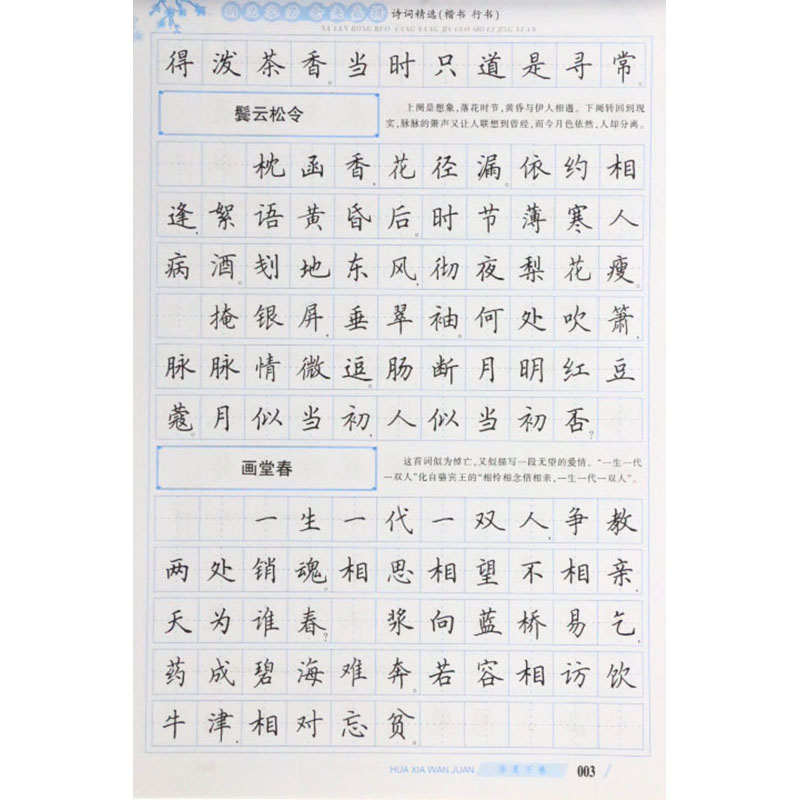 纳兰容若 仓央嘉措 诗词精选(楷书 行书)
NA LAN RONG RUO CANG YANG JIA CUO SHI CI JING XUAN
得泼茶香。当时只道是寻常。
鬓云松令
上阕是想象,落花时节,黄昏与伊人相遇。下阕转回到现
实,脉脉的箫声又让人联想到曾经,而今月色依然,人却分离。
枕函香,花径漏。依约相
逢,絮语黄昏后。时节薄寒人
病酒。刬地东风,彻夜梨花瘦。
掩银屏,垂翠袖。何处吹箫,
脉脉情微逗。肠断月明红豆
蔻。月似当初,人似当初否?
画堂春
这首词似为悼亡,又似描写一段无望的爱情。“一生一代
一双人”化自骆宾王的“相怜相念倍相亲,一生一代一双人”。
一生一代一双人,争教
两处销魂。相思相望不相亲,
天为谁春? 浆向蓝桥易乞,
药成碧海难奔。若容相访饮
牛津,相对忘贫。
HUA XIA WAN JUAN 华夏万卷 003